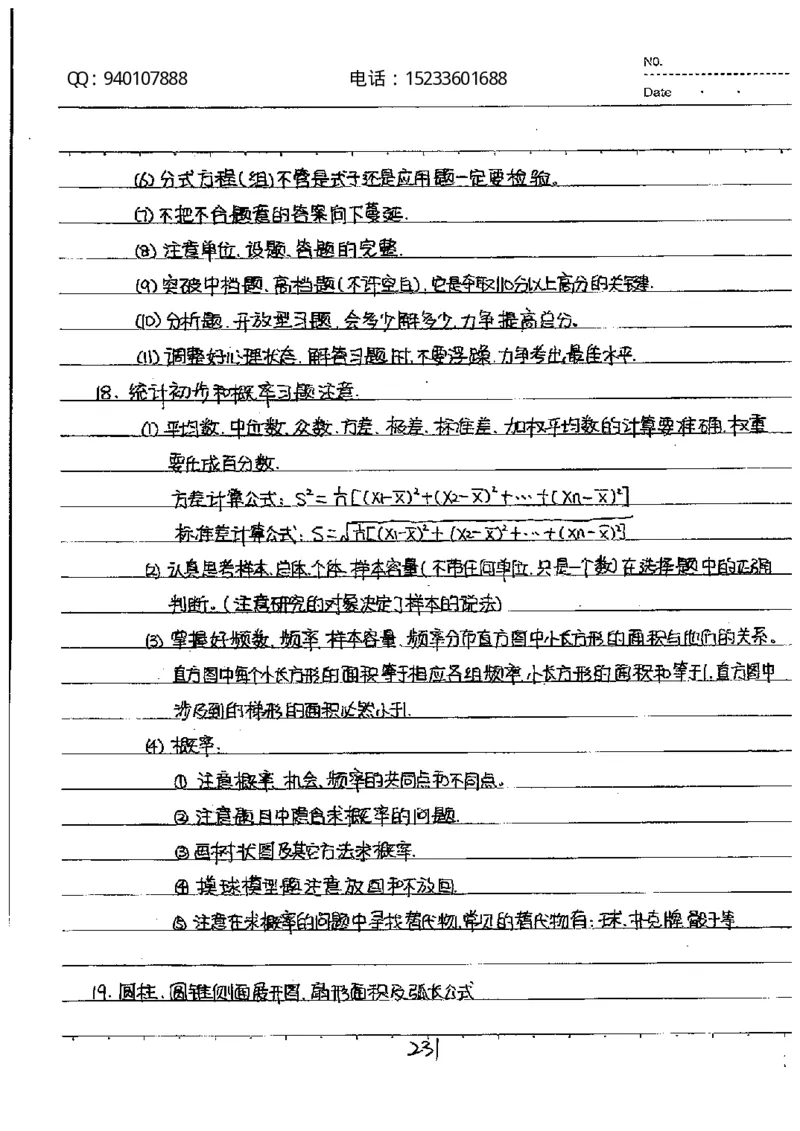 QQ：940107888 电话：15233601688 NO.
Date
(6) 分式方程(组)不管是式子还是应用题一定要检验。
(7) 不把不合题意的答案向下蔓延.
(8) 注意单位、设题、答题的完整.
(9) 突破中档题、高档题(不许空白), 它是夺取110分以上高分的关键.
(10) 分析题、开放型习题, 会多少解多少, 力争提高总分。
(11) 调整好心理状态, 解答习题时, 不要浮躁, 力争考出最佳水平.
18. 统计初步和概率习题注意.
(1) 平均数、中位数、众数、方差、极差、标准差、加权平均数的计算要准确, 权重
要化成百分数.
方差计算公式: S²=1/n[(X₁-X̄)²+(X₂-X̄)²+…+(Xn-X̄)²]
标准差计算公式: S=√1/n[(X₁-X̄)²+(X₂-X̄)²+…+(Xn-X̄)²]
(2) 认真思考样本、总体、个体、样本容量(不带任何单位, 只是一个数)在选择题中的正确
判断。(注意研究的对象决定了样本的说法)
(3) 掌握好频数、频率、样本容量、频率分布直方图中小长方形的面积与他们的关系。
直方图中每个小长方形的面积等于相应各组频率, 小长方形的面积和等于1, 直方图中
涉及到的梯形的面积必然小于1.
(4) 概率:
① 注意概率、机会、频率的共同点和不同点。
② 注意题目中隐含求概率的问题.
③ 画树状图及其它方法求概率.
④ 摸球模型题注意放回和不放回.
⑤ 注意在求概率的问题中寻找替代物, 常见的替代物有: 球、扑克牌、骰子等
19. 圆柱、圆锥侧面展开图, 扇形面积及弧长公式
231